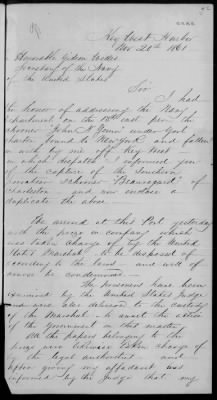 Key West Harbor
Nov 20th 1861
Honorable Gideon Welles
Secretary of the Navy
of the United States
Sir
I had
the honor of addressing the Navy
Department on the 18th per the
Schooner "John N Genin" under Govt
charter bound to New York and fallen
in with by me off Key West
in which despatch I informed you
of the capture of the Southern
Privateer Schooner "Beauregard" of
Charleston and now enclose a
duplicate the above
We arrived at this Port yesterday
with the prize in company which
was taken charge of by the United
States Marshal to be disposed of
according to the law and will of
course be condemned
The prisoners have been
examined by the United States Judge
and were also delivered to the custody
of the Marshal to await the action
of the Government in this matter
All the papers belonging to the
prize were likewise taken charge of
the legal authorities and
upon giving my affidavit was
informed by the Judge that my